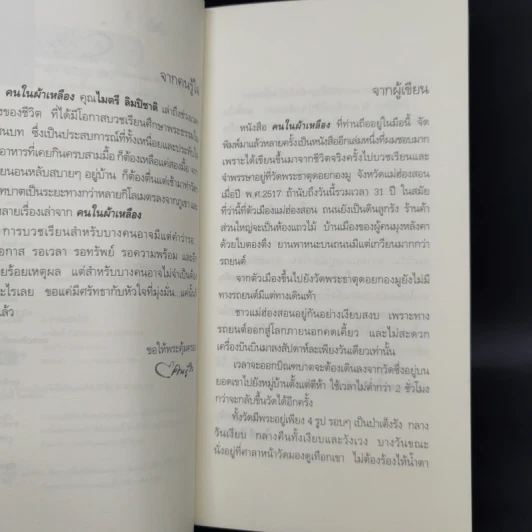 จากคนรู้ใจ
คนในผ้าเหลือง คุณไมตรี ลิมปิชาติ เล่าถึงช่วง
ของชีวิต ที่ได้มีโอกาสบวชเรียนศึกษาพระธรรมใน
นบท ซึ่งเป็นประสบการณ์ที่ทั้งเหนื่อยและประทับใจ
อาหารที่เคยกินครบสามมื้อ ก็ต้องเหลือแค่สองมื้อ จาก
ยนอนหลับสบายๆ อยู่บ้าน ก็ต้องตื่นแต่เช้ามาทำวัตร
ฑบาตเป็นระยะทางกว่าหลายกิโลเมตรลงจากภูเขา และ
ลายเรื่องเล่าจาก คนในผ้าเหลือง
การบวชเรียนสำหรับบางคนอาจมีแต่คำว่ารอ
อกาส รอเวลา รอทรัพย์ รอความพร้อม และอีก
ยร้อยเหตุผล แต่สำหรับบางคนอาจไม่จำเป็นต้อง
อะไรเลย ขอแค่มีศรัทธากับหัวใจที่มุ่งมั่น...แค่นั้นก็
แล้ว
ขอให้พระคุ้มครอง
คนรู้ใจ
จากผู้เขียน
หนังสือ คนในผ้าเหลือง ที่ท่านถืออยู่ในมือนี้ จัด
พิมพ์มาแล้วหลายครั้งเป็นหนังสืออีกเล่มหนึ่งที่ผมชอบมาก
เพราะได้เขียนขึ้นมาจากชีวิตจริงครั้งไปบวชเรียนและ
จำพรรษาอยู่ที่วัดพระธาตุดอยกองมู จังหวัดแม่ฮ่องสอน
เมื่อปี พ.ศ.2517 ถ้านับถึงวันนี้รวมเวลา 31 ปี ในสมัย
ที่ว่านี้ที่ตัวเมืองแม่ฮ่องสอน ถนนยังเป็นดินลูกรัง ร้านค้า
ส่วนใหญ่จะเป็นห้องแถวไม้ บ้านเมืองของผู้คนมุงหลังคา
ด้วยใบตองตึง ยานพาหนะบนถนนมีแต่เกวียนมากกว่า
รถยนต์
จากตัวเมืองขึ้นไปยังวัดพระธาตุดอยกองมูยังไม่มี
ทางรถยนต์มีแต่ทางเดินเท้า
ชาวแม่ฮ่องสอนอยู่กันอย่างเงียบสงบ เพราะทาง
รถยนต์ออกสู่โลกภายนอกคดเคี้ยว และไม่สะดวก
เครื่องบินบินมาลงสัปดาห์ละเพียงวันเดียวเท่านั้น
เวลาจะออกบิณฑบาตจะต้องเดินลงจากวัดซึ่งอยู่บน
ยอดเขาไปยังหมู่บ้านตั้งแต่ตีห้า ใช้เวลาไม่ต่ำกว่า 2 ชั่วโมง
กว่าจะกลับขึ้นวัดได้อีกครั้ง
ทั้งวัดมีพระอยู่เพียง 4 รูป รอบๆ เป็นป่าเต็งรัง กลาง
วันเงียบ กลางคืนทั้งเงียบและวังเวง บางวันขณะ
นั่งอยู่ที่ศาลาหน้าวัดมองดูเทือกเขา ไม่ต้องร้องไห้น้ำตา